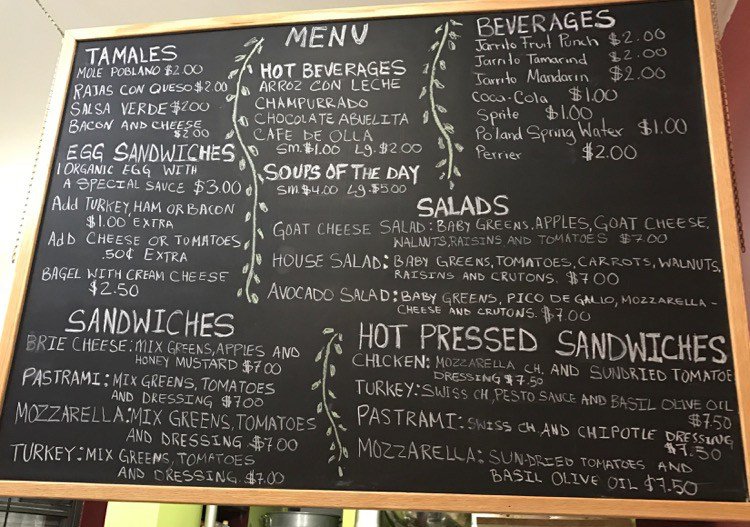 MENU
TAMALES
MOLE POBLANO $2.00
RAJAS CON QUESO $2.00
SALSA VERDE $2.00
BACON AND CHEESE
$2.00
EGG SANDWICHES
1 ORGANIC EGG WITH
A SPECIAL SAUCE $3.00
Add TURKEY, HAM OR BACON
$1.00 EXTRA
ADD CHEESE OR TOMATOES
.50¢ EXTRA
BAGEL WITH CREAM CHEESE
$2.50
HOT BEVERAGES
ARROZ CON LECHE
CHAMPURRADO
CHOCOLATE ABUELITA
CAFE DE OLLA
Sm. $1.00 Lg. $2.00
SOUPS OF THE DAY
Sm. $4.00 Lg. $5.00
BEVERAGES
Jarrito Fruit Punch $2.00
Jarrito Tamarind $2.00
Jarrito Mandarin $2.00
Coca-Cola $1.00
Sprite $1.00
Poland Spring Water $1.00
Perrier $2.00
SALADS
GOAT CHEESE SALAD: BABY GREENS, APPLES, GOAT CHEESE,
WALNUTS, RAISINS AND TOMATOES $7.00
HOUSE SALAD: BABY GREENS, TOMATOES, CARROTS, WALNUTS,
RAISINS AND CRUTONS. $7.00
AVOCADO SALAD: BABY GREENS, PICO DE GALLO, MOZZARELLA-
CHEESE AND CRUTONS. $7.00
SANDWICHES
BRIE CHEESE: MIX GREENS, APPLES AND
HONEY MUSTARD $7.00
PASTRAMI: MIX GREENS, TOMATOES
AND DRESSING $7.00
MOZZARELLA: MIX GREENS, TOMATOES
AND DRESSING $7.00
TURKEY: MIX GREENS, TOMATOES
AND DRESSING. $7.00
HOT PRESSED SANDWICHES
CHICKEN: MOZZARELLA CH. AND SUNDRIED TOMATOE
DRESSING $7.50
TURKEY: SWISS CH, PESTO SAUCE AND BASIL OLIVE OIL
$7.50
PASTRAMI: SWISS CH, AND CHIPOTLE DRESSING
$7.50
MOZZARELLA: SUN-DRIED TOMATOES AND
BASIL OLIVE OIL $7.50